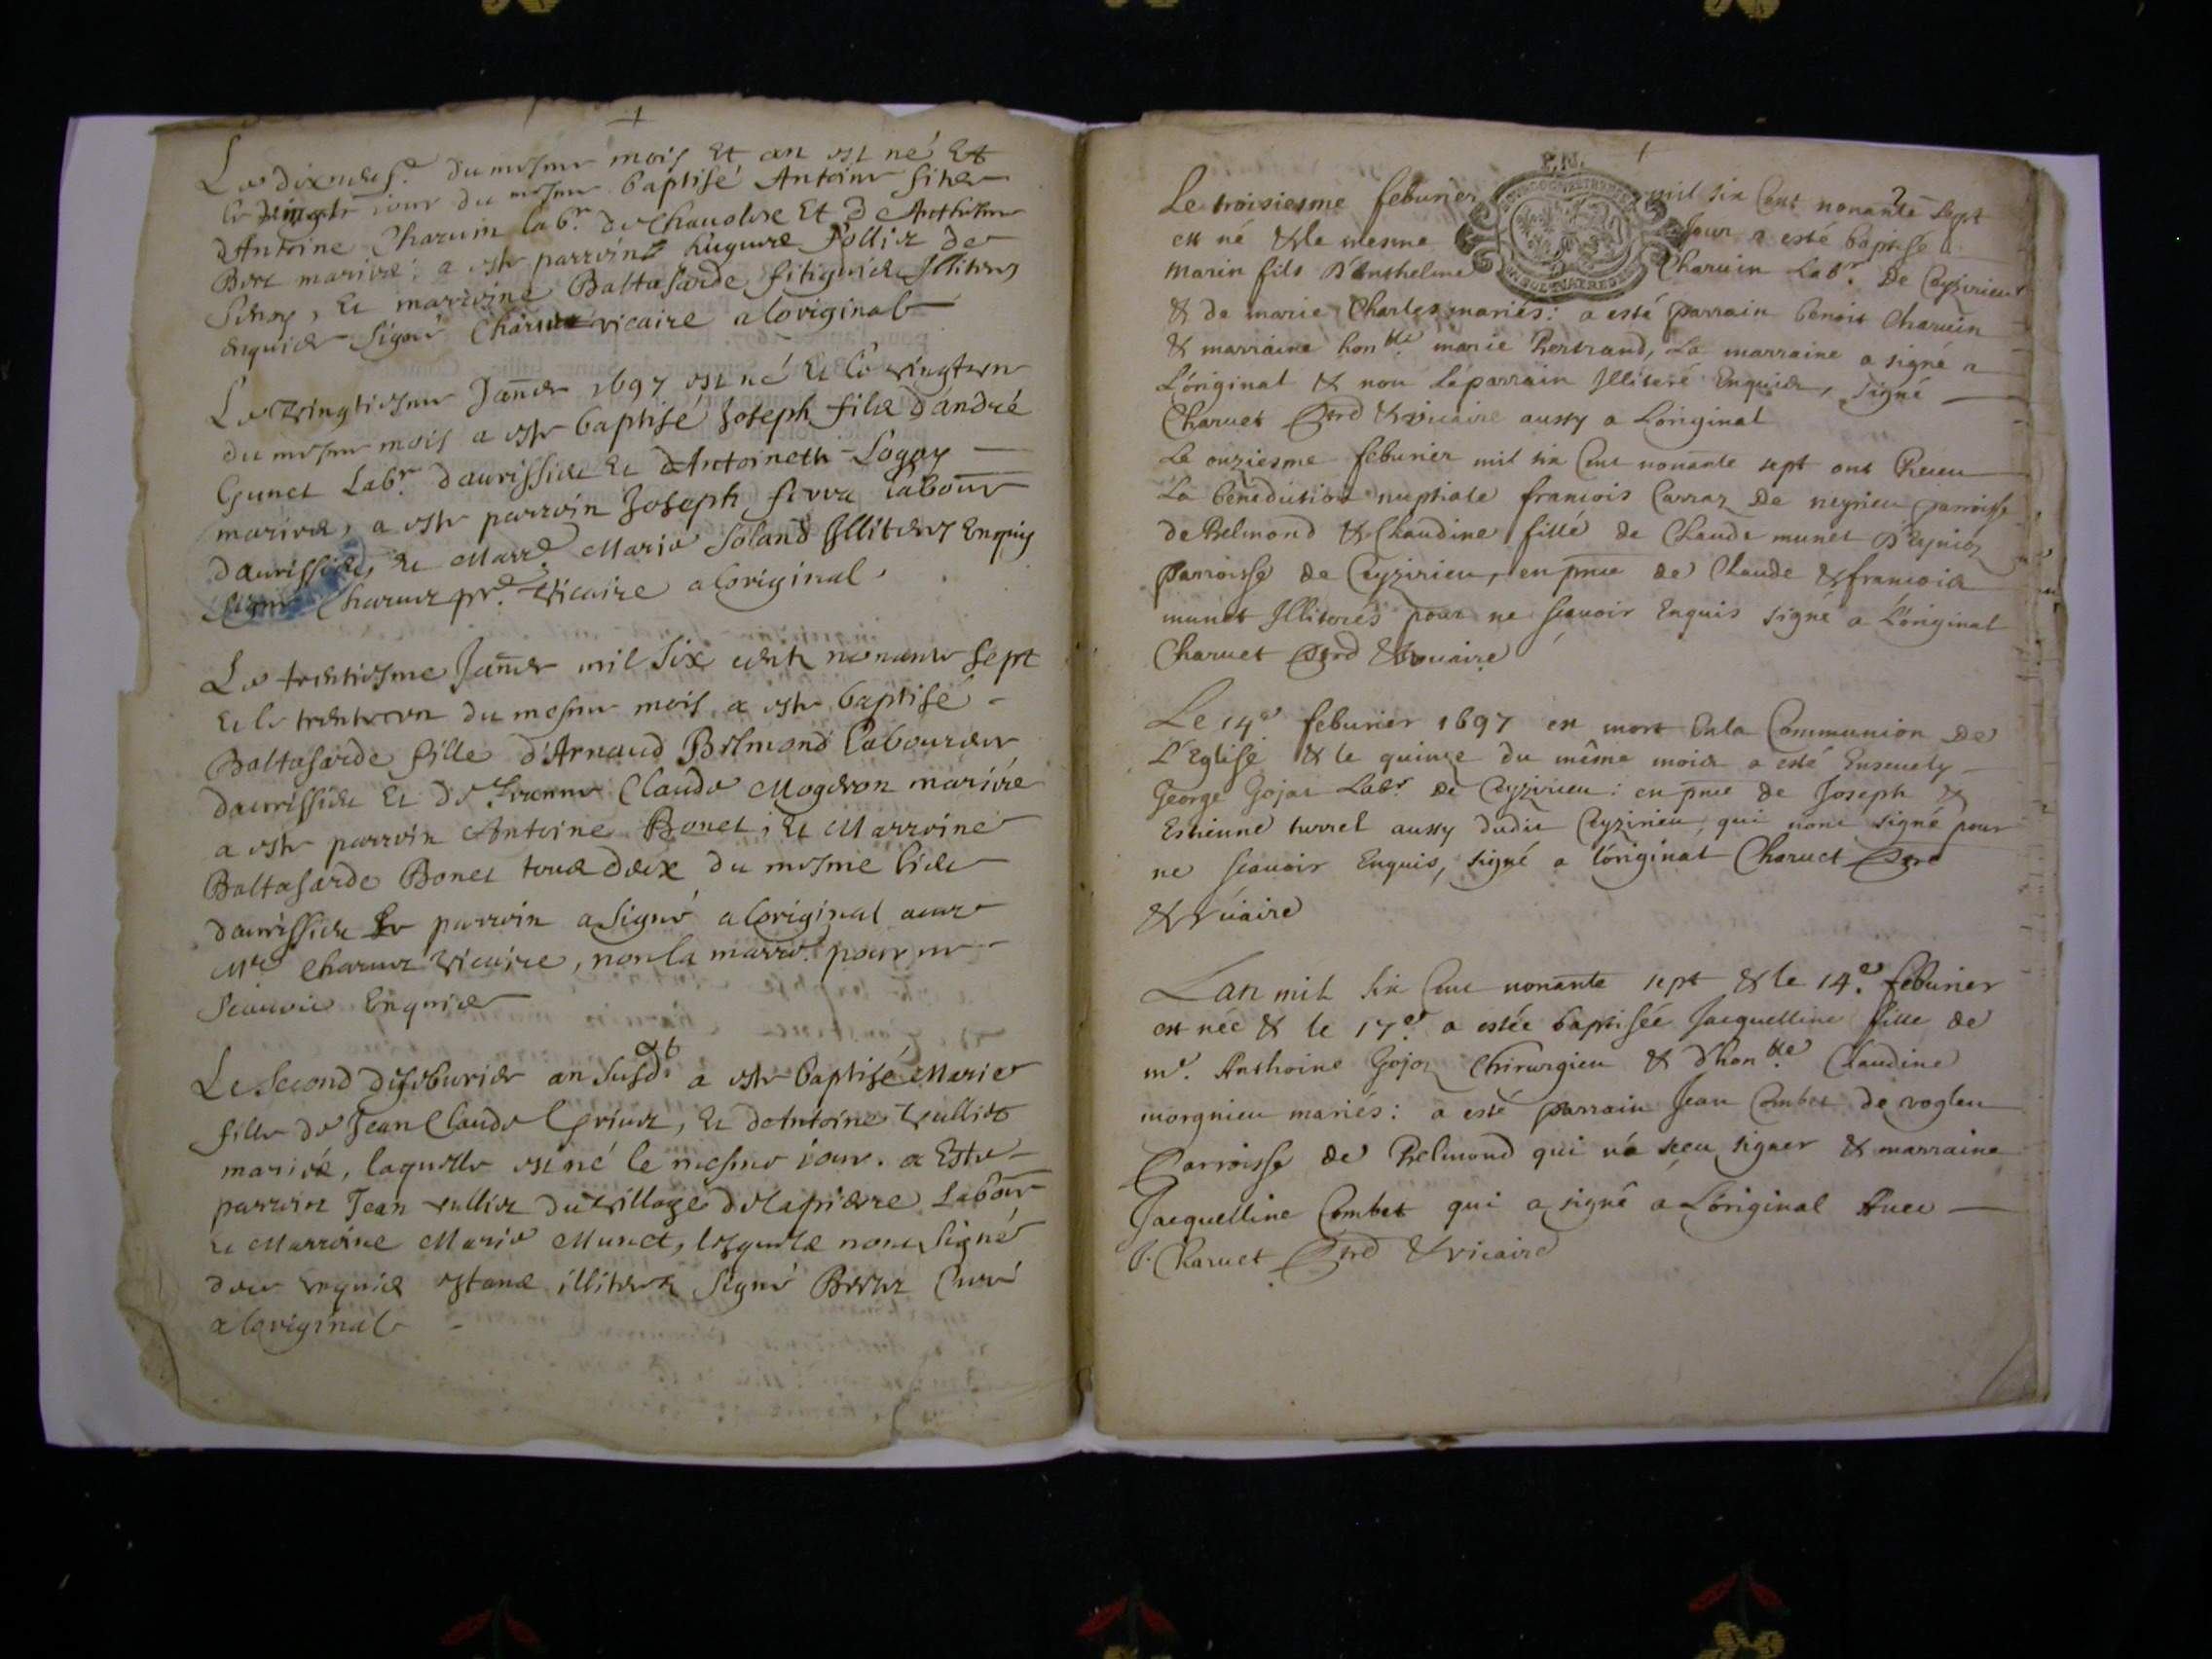 Le dixneuf.e du mesme mois Et an est né Et
le vingt iour du mesme baptisé Antoine filz
dAntoine Charuin lab.r de Chauolex Et de Anthelme
mariez: a este parroin
Et marroine Baltasarde Illiterez
enquiez Signé Charuet vicaire a loriginal
Le Vingtiesme Janer 1697 est né Et le vingtun
du mesme mois a este baptisé Joseph filz dandré
Gunet Lab.r daurissieu Et dAntoinette Logoy
mariez, a este parroin Joseph serra labour
daurissieu, Et Marr.e Marie Soland Illiterez Enquis
Signé Charuet pr.e Vicaire a loriginal.
Le trentiesme Janer mil Six cents nonante Sept
Et le trenteun du mesme mois a este baptisé
Baltasarde fille d'Arnaud Belmond laboureur
daurissieu Et de Claude Mogeron mariée
a este parroin Antoine Bonet, Et Marroine
Baltasarde Bonet tous deux du mesme lieu
daurissieu Le parroin a Signé a loriginal auec
M.re Charuet Vicaire, non la marr.e pour ne
Scauoir Enquise
Le Second defeburier an Susd.t a este Baptisé Marie
fille de Jean Claude Griuet, Et dAntoine Vulliet
mariés, laquelle est né le mesme iour. a Este
parroin Jean vulliet du Village de lapierre Labour
et Marroine Marie Munet, lesquels nont Signé
deue enquis estans illiterez Signé Curé
a loriginal
P.N.
2
Le troisiesme feburier mil six Cent nonante Sept
est né & le mesme Jour a esté baptisé
Marin fils D'Anthelme Charuin Lab.r De Ceyzirieu
& de marie Charles mariés: a esté parrain benoit Charuin
& marraine hon.ble marie Bertrand, La marraine a signé a
L'original & non Le parrain Illiteré Enquis, signé
Charuet Ptre & vicaire aussy a Loriginal
Le onziesme feburier mil six Cent nonante sept ont Receu
La benediction nuptiale francois Carraz De neyrieu parroisse
de Belmond & Claudine fille de Claude munet D'Eyniez
Parroisse de Ceyzirieu, en pnce de Claude & francois
munet Illiterés pour ne scauoir Enquis signé a L'original
Charuet Ptre & vicaire
Le 14.e feburier 1697 est mort En la Communion De
L'Eglise & le quinze du même mois a esté Enseuely
George Gojat Labr De Ceyzirieu: en pnce de Joseph &
Estienne turrel aussy dudit Ceyzirieu, qui nont signé pour
ne scauoir Enquis, signé a l'original Charuet Ptre
& vicaire
Lan mil six Cent nonante sept & le 14.e feburier
est née & le 17.e a estée baptisée Jacquelline fille de
m.e Anthoine Gojoz Chirurgien & d'hon.ble Claudine
morgnieu mariés: a esté parrain Jean Combet de vogleu
Parroisse de Belmond qui n'a sceu signer & marraine
Jacquelline Combet qui a signé a L'original Auec
C. Charuet Ptre & vicaire